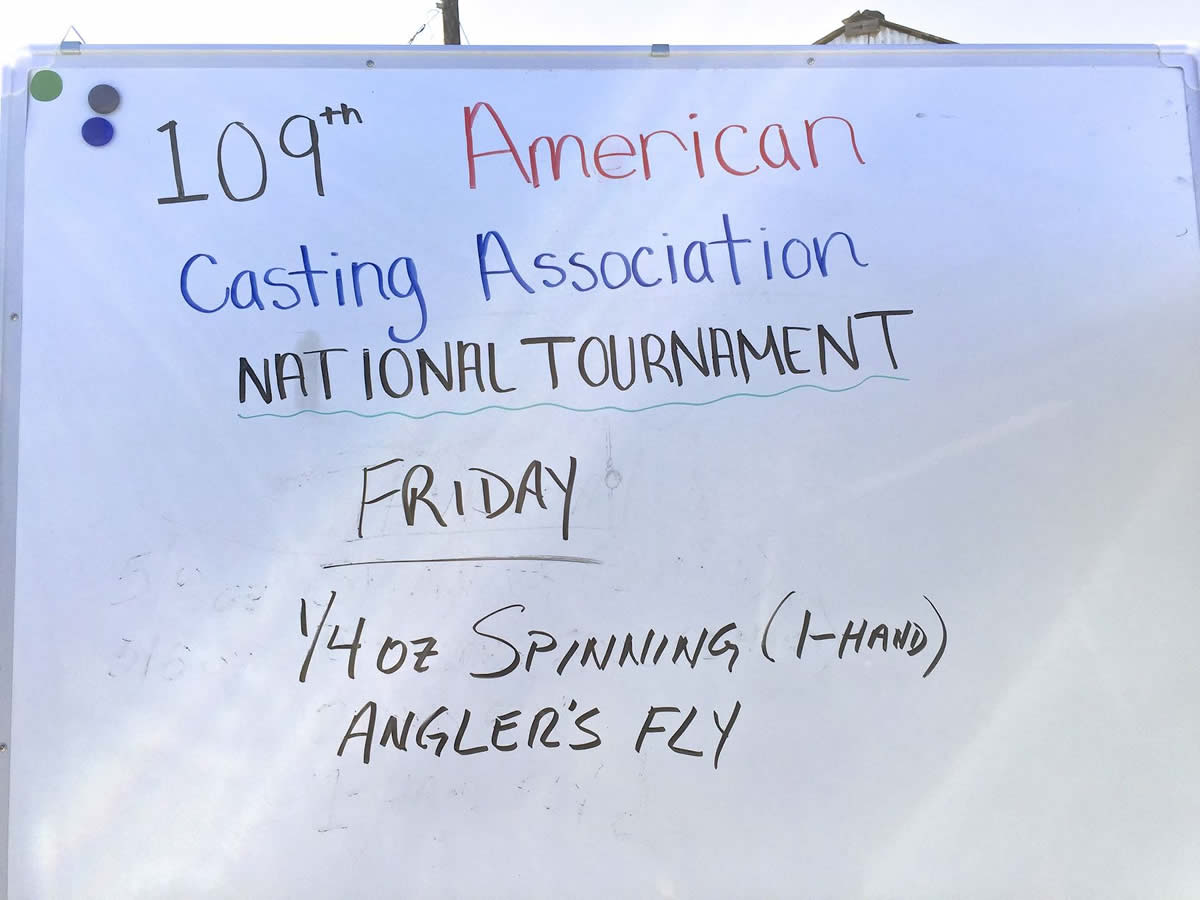 109th American
Casting Association
NATIONAL TOURNAMENT
FRIDAY
1/4 oz SPINNING (1-HAND)
ANGLER'S FLY